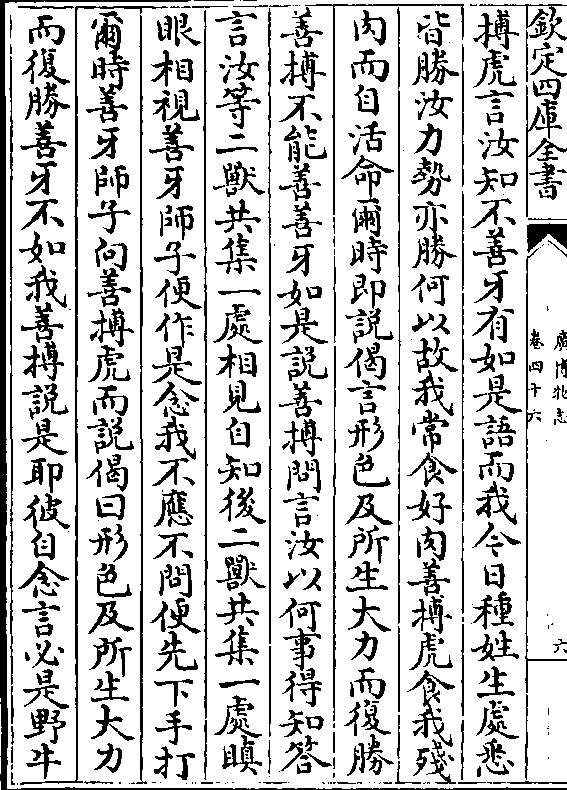 欽定四庫全書
廣博物志
卷四十六
六
搏虎言汝知不善牙有如是語而我今日種姓生處悉
皆勝汝力勢亦勝何以故我常食好肉善搏虎食我殘
肉而自活命爾時即說偈言形色及所生大力而復勝
善搏不能善善牙如是說善搏問言汝以何事得知答
言汝等二獸共集一處相見自知後二獸共集一處瞋
眼相視善牙師子便作是念我不應不問便先下手打
爾時善牙師子向善搏虎而說偈曰形色及所生大力
而復勝善牙不如我善搏說是耶彼自念言必是野牛